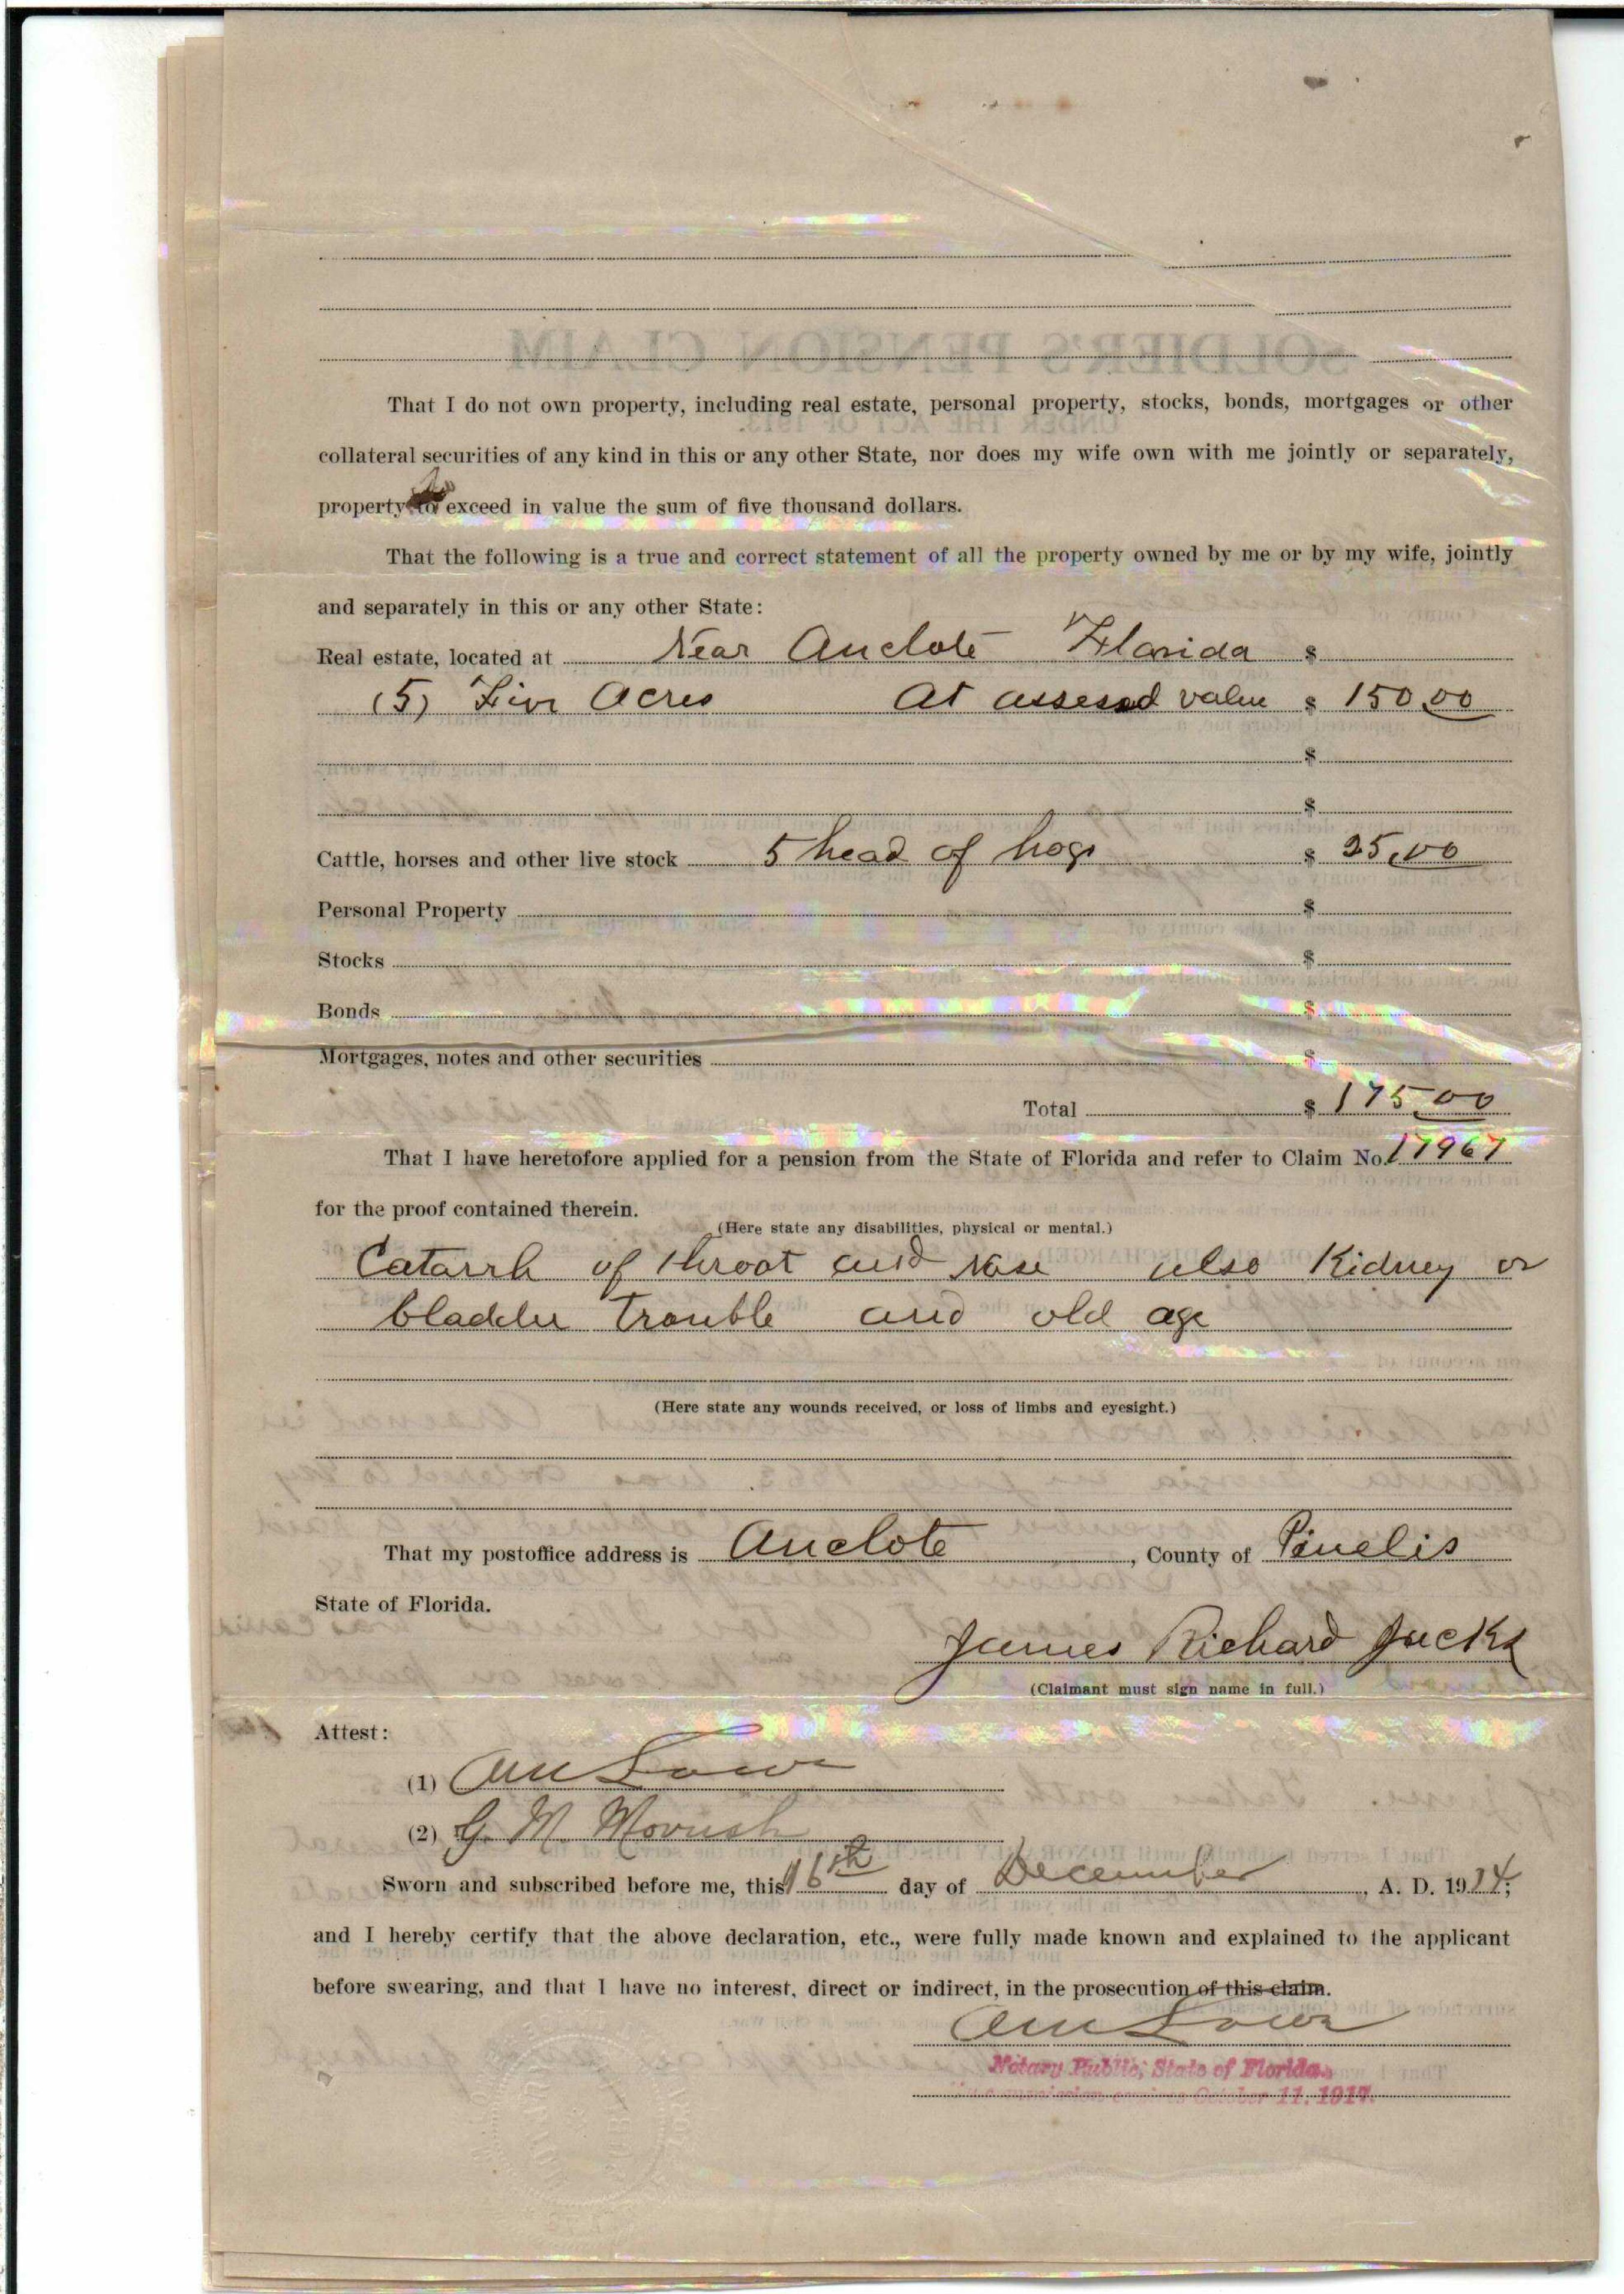 That I do not own property, including real estate, personal property, stocks, bonds, mortgages or other
collateral securities of any kind in this or any other State, nor does my wife own with me jointly or separately,
property to exceed in value the sum of five thousand dollars.
That the following is a true and correct statement of all the property owned by me or by my wife, jointly
and separately in this or any other State:
Real estate, located at Near Anclote Florida $
(5) Five Acres At assessed value $ 150.00
$
$
Cattle, horses and other live stock 5 head of hogs $ 25.00
Personal Property $
Stocks $
Bonds $
Mortgages, notes and other securities $
Total $ 175.00
That I have heretofore applied for a pension from the State of Florida and refer to Claim No. 17967
for the proof contained therein.
(Here state any disabilities, physical or mental.)
Catarrh of throat and Nose also Kidney or
bladder trouble and old age
(Here state any wounds received, or loss of limbs and eyesight.)
That my postoffice address is Anclote, County of Pinelis
State of Florida.
James Richard Jucks
(Claimant must sign name in full.)
Attest:
(1) Lowe
(2) G. M.
Sworn and subscribed before me, this 16th day of December, A. D. 1914;
and I hereby certify that the above declaration, etc., were fully made known and explained to the applicant
before swearing, and that I have no interest, direct or indirect, in the prosecution of this claim.
Lowe
Notary Public, State of Florida.
commission expires October 11, 1917.